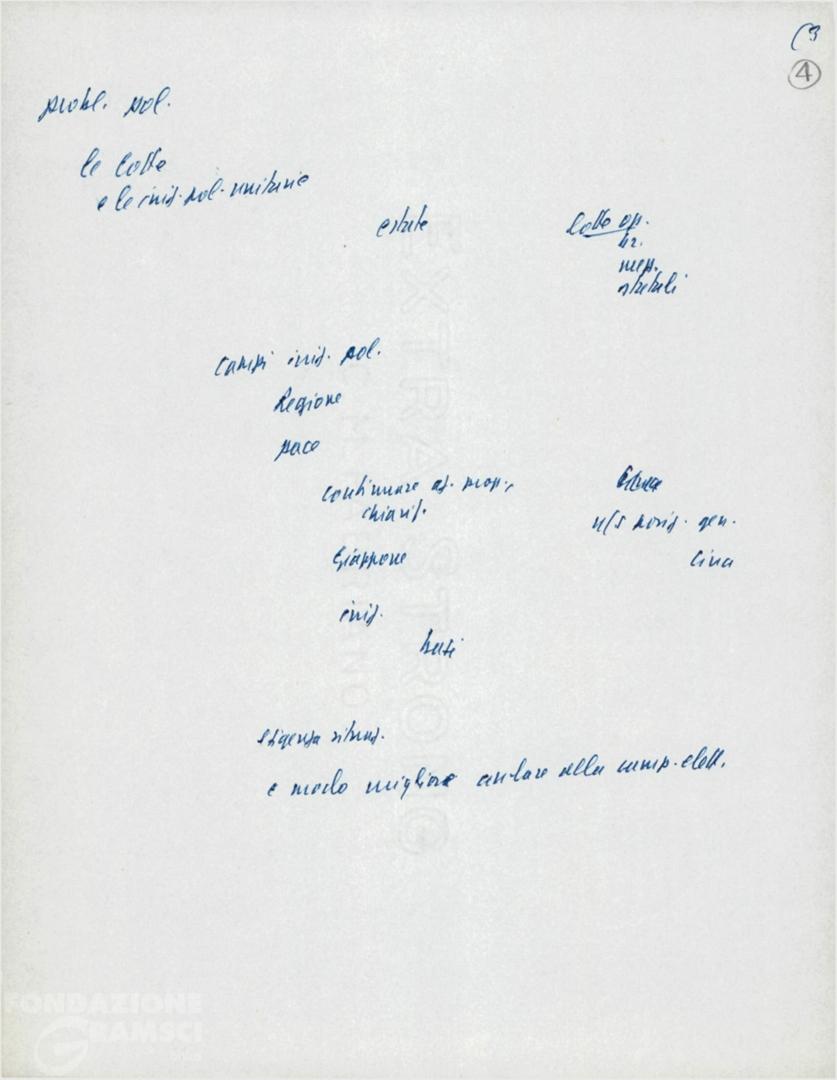 (3
4
probl. pol.
le lotte
e le iniz. pol. unitarie
estate
lotte op.
mezz.
statali
campi iniz. pol.
Regione
pace
continuare az. prop.,
chiarif.
n/s posiz. gen.
Giappone
Cina
iniz.
basi
esigenza situaz.
e modo migliore andare alla camp. elett.
EXTRA STRONG
FONDAZIONE
GRAMSCI